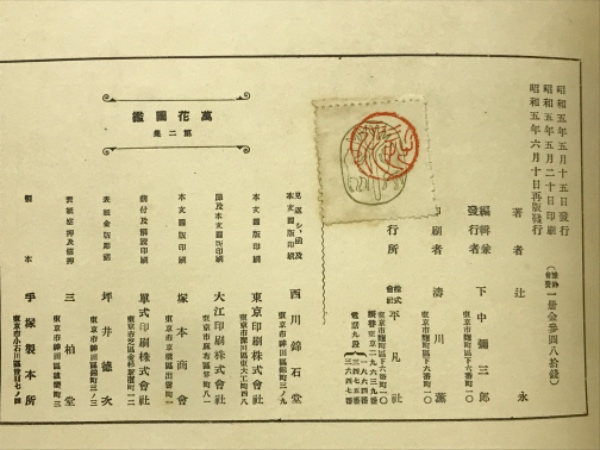 昭和五年五月十五日發行
昭和五年五月二十日印刷
昭和五年六月十日再版發行
一册金參圓八拾錢
著者 辻 永
編輯兼發行者 下中彌三郎
東京市麴町區下六番町一〇
印刷者 濤川薰
東京市麴町區下六番町一〇
行所 株式會社 平凡社
東京市麴町區下六番町一〇
振替東京二九六三九番
電話九段
見返シ、函及本文圖版印刷 西川錦石堂
東京市神田區錦町三ノ九
本文圖版印刷 東京印刷株式會社
東京市深川區東大工町四八
本文圖版印刷 大江印刷株式會社
東京市麻布區霞町八一
本文圖版印刷 塚本商會
東京市京橋區出雲町一
單式印刷株式會社
表紙金版彫刻 坪井德次
東京市神田區錦町三ノ三
三柏堂
製本 手塚製本所
萬花圖鑑
第二集